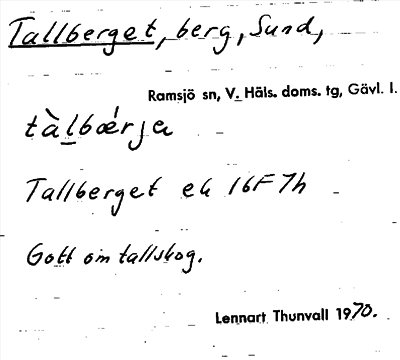 Tallberget, berg, Sund,
Ramsjö sn, V. Häls. doms. tg, Gävl. l.
tàlbǽrja
Tallberget ek 16F 7h
Gott om tallskog.
Lennart Thunvall 1970.